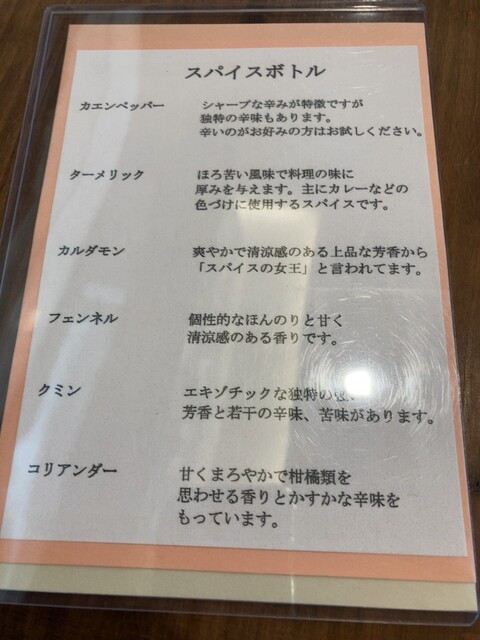 スパイスボトル
カエンペッパー シャープな辛みが特徴ですが
独特の辛味もあります。
辛いのがお好みの方はお試しください。
ターメリック ほろ苦い風味で料理の味に
厚みを与えます。主にカレーなどの
色づけに使用するスパイスです。
カルダモン 爽やかで清涼感のある上品な芳香から
「スパイスの女王」と言われてます。
フェンネル 個性的なほんのりと甘く
清涼感のある香りです。
クミン エキゾチックな独特の強い
芳香と若干の辛味、苦味があります。
コリアンダー 甘くまろやかで柑橘類を
思わせる香りとかすかな辛味を
もっています。